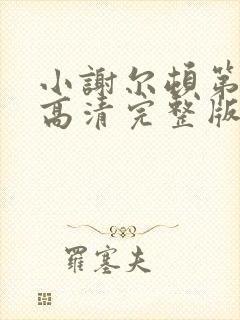 小謝尔頓第
高清完整版
羅塞夫